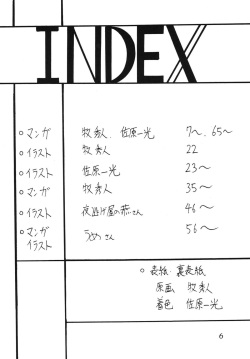 INDEX
○ マンガ 牧秀人 佐原一光 7〜、65〜
○ イラスト 牧秀人 22
○ イラスト 佐原一光 23〜
○ マンガ 牧秀人 35〜
○ イラスト 夜逃げ屋の恭さん 46〜
○ マンガ イラスト うめさん 56〜
○ 表紙・裏表紙
原画 牧秀人
着色 佐原一光
6